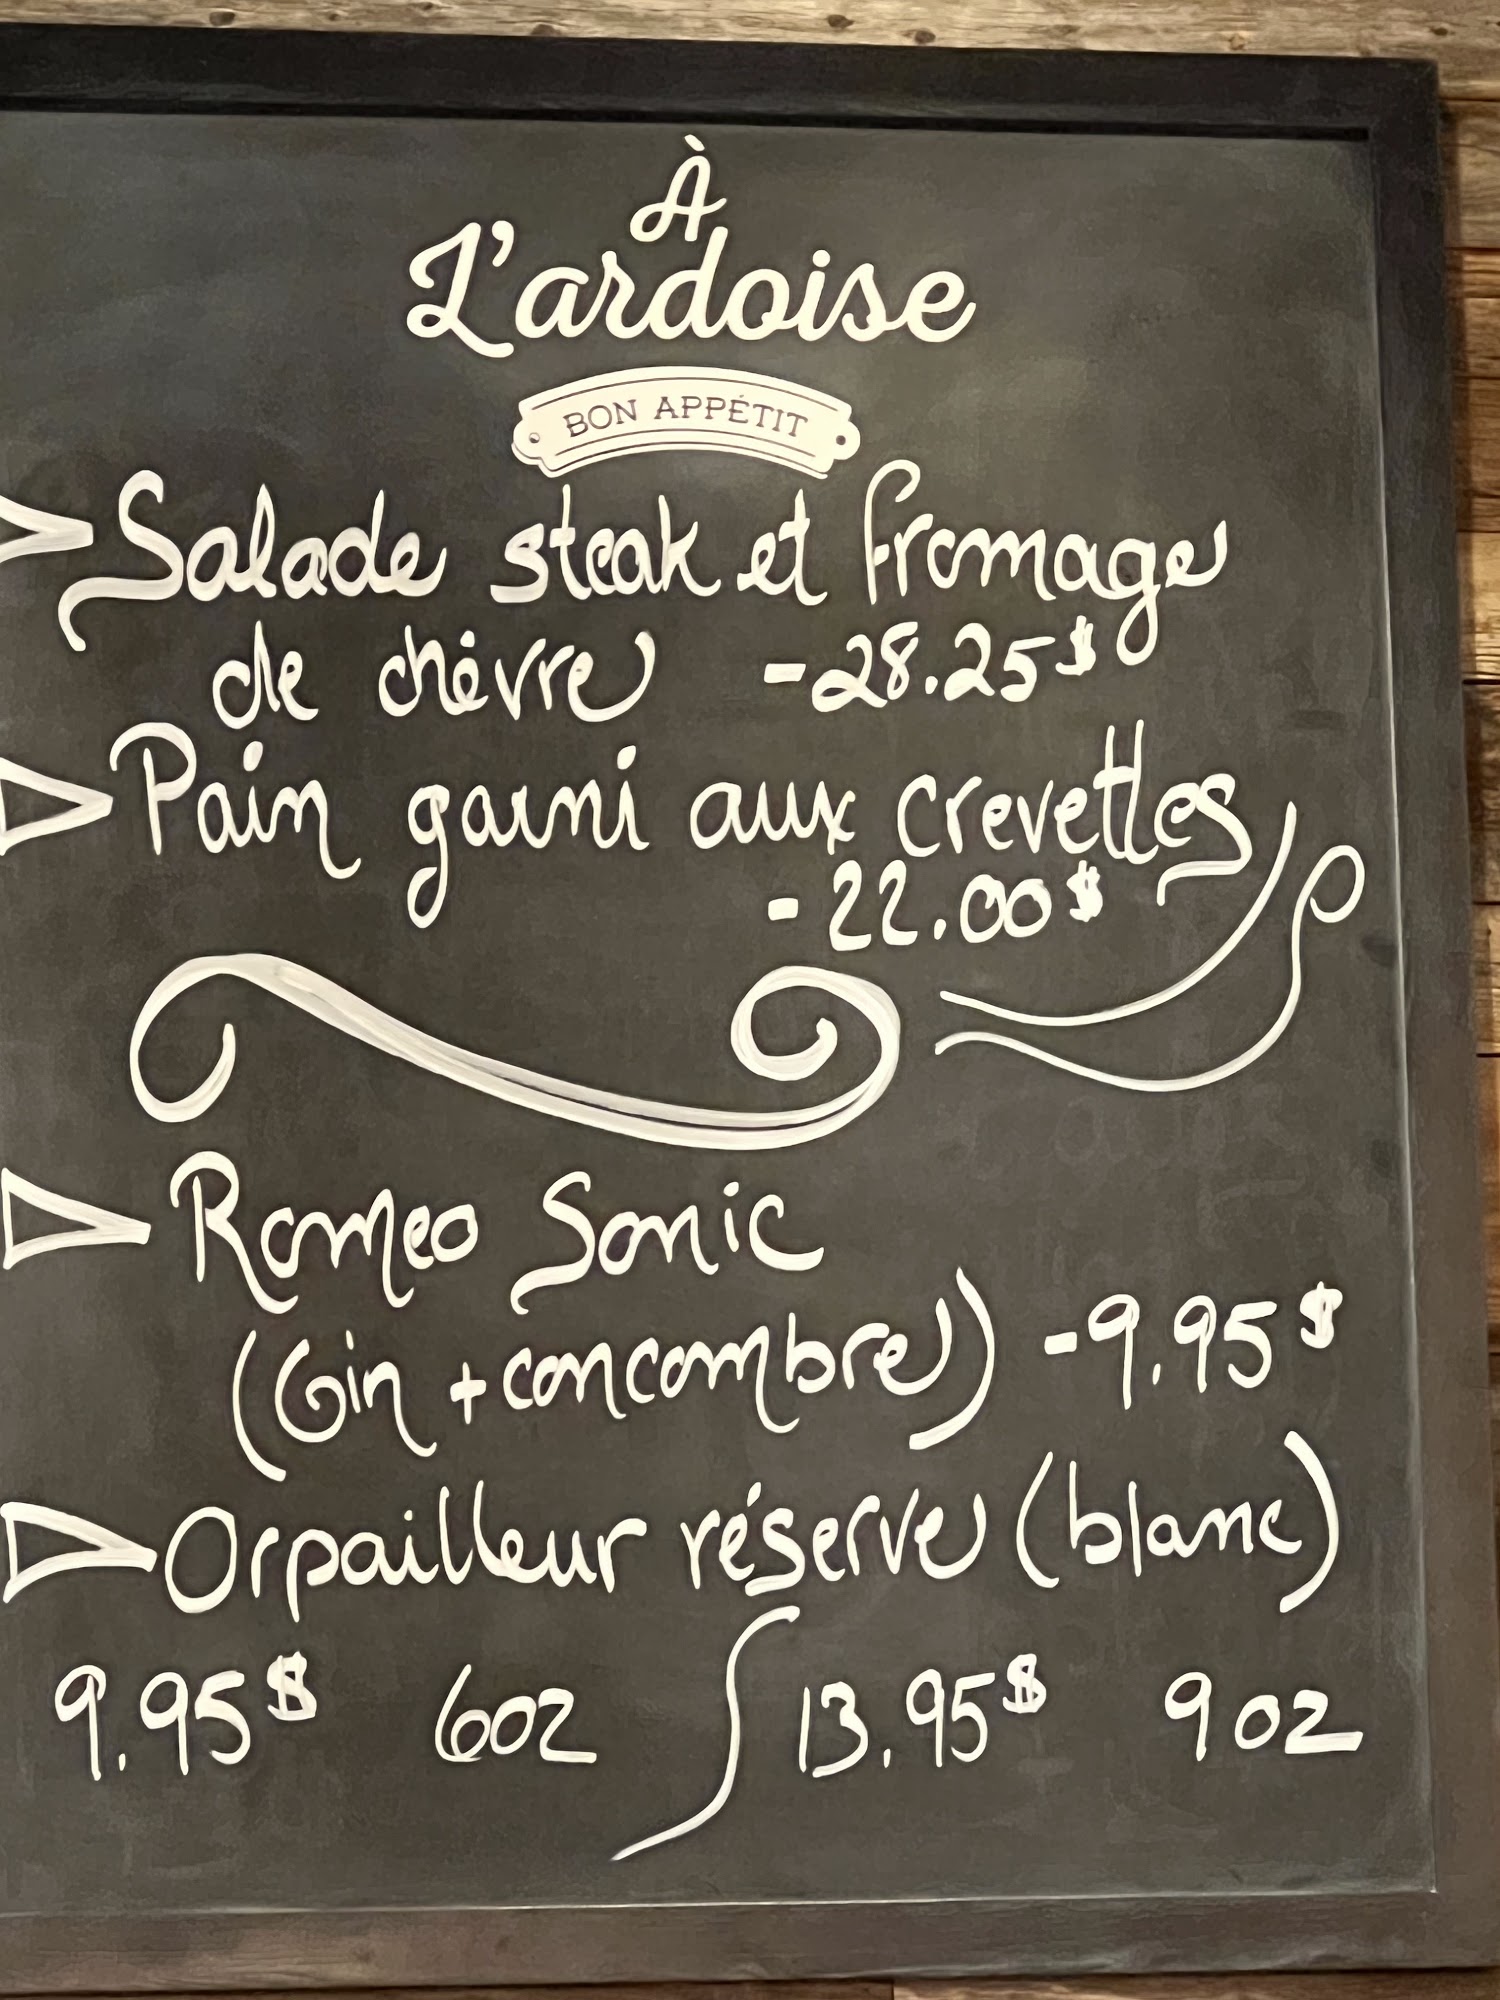 À
L'ardoise
BON APPÉTIT
Salade steak et fromage
de chèvre -28.25$
Pain garni aux crevettes
-22.00$
Romeo Sonic
(Gin + concombre) -9.95$
Orpailleur réserve (blanc)
9.95$ 6oz 13.95$ 9oz